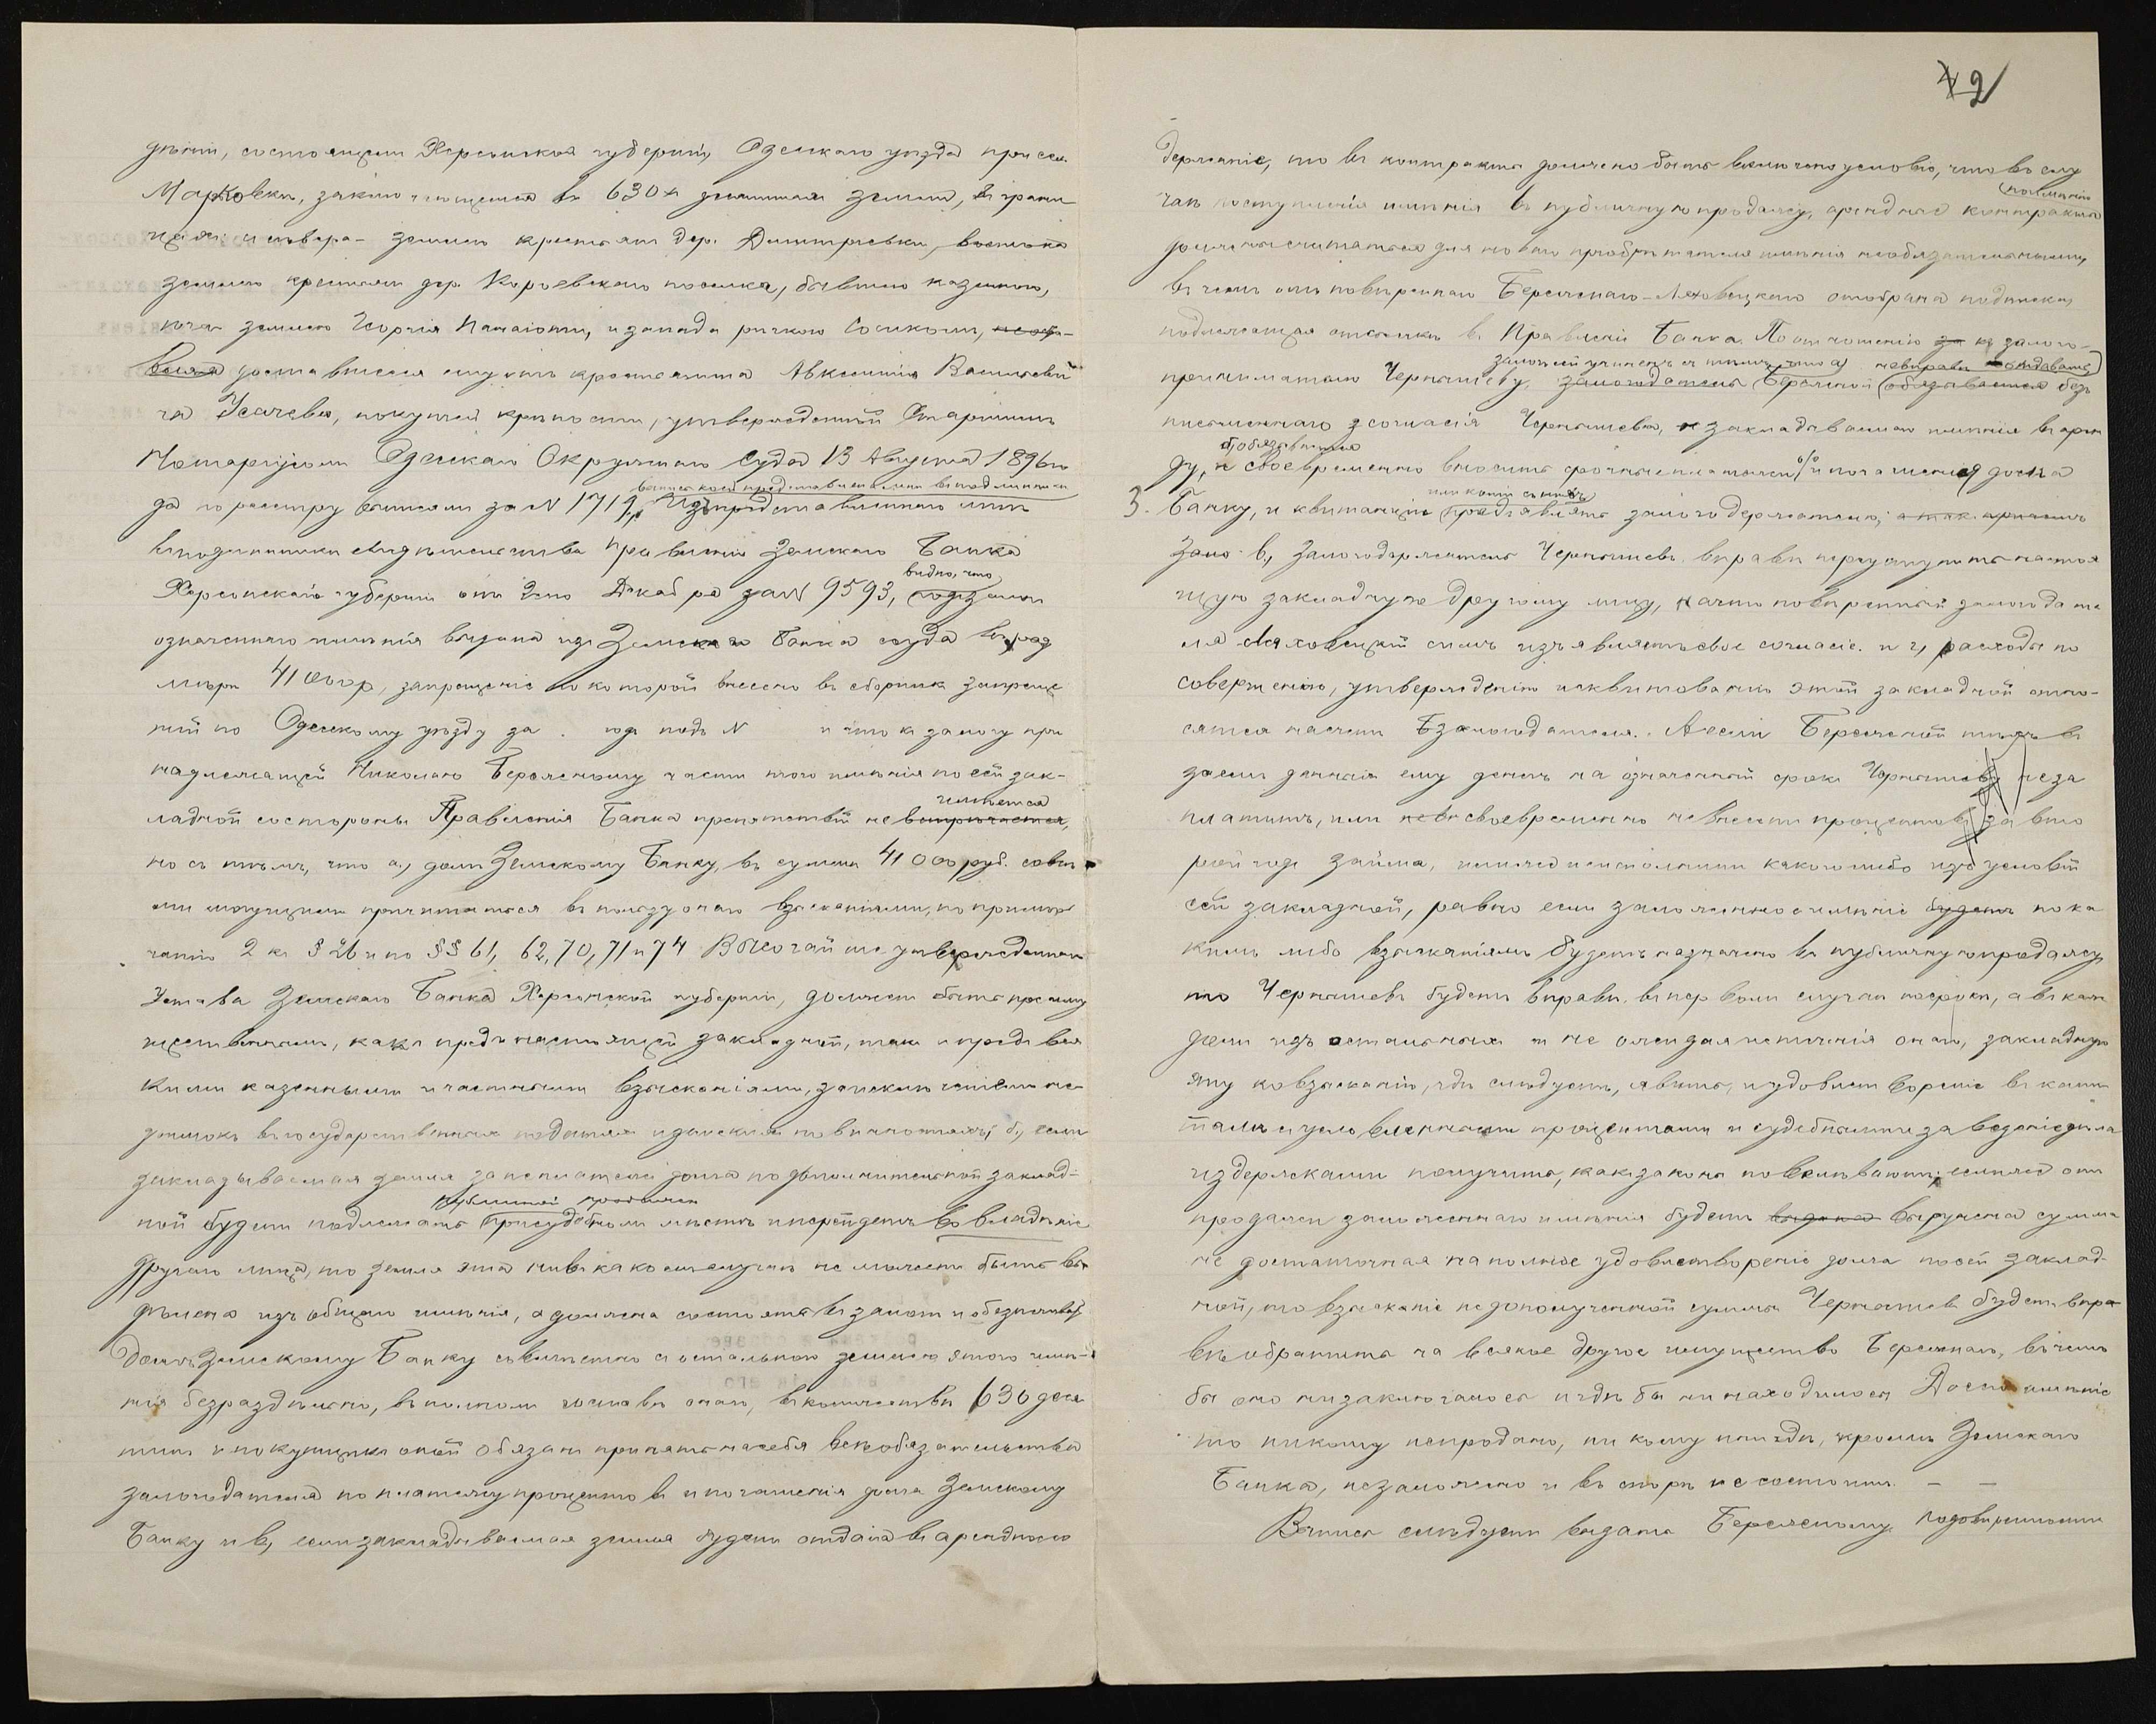 42
дѣніи, состоящем Херсонской губерніи, Одесскаго уѣзда при сел.
Марковки, заключающемся въ 630х десятинах земли, въ грани-
цахъ: и сѣвера - землею крестьян дер. Дмитріевки, востока
землею крестьян дер. Короевскаго поселка, бывшею казенною,
юга землею Георгія Панаіоти, и запада рѣчкою Сосиком,
доставшемся ему отъ крестьянина Авксентія Васильеви
ча Усачева, по купчей крѣпости, утвержденной Старшимъ
Нотаріусом Одесскаго Окружнаго Суда 13 Августа 1896 го
выпись коей представлена мнѣ въ подлинникѣ
да по реестру крѣпостн за N 1719, Изъ представленнаго мнѣ
въ подлинникѣ свидѣтельства Правленія Земскаго Банка
видно, что
Херсонской губерніи отъ 2го Декабря за N 9593, подъ залог
означеннаго имѣнія выдана изъ Земскаго Банка ссуда въ раз
мѣрѣ 41000 р, запрещеніе по которой внесено въ сборник запреще
ній по Одесскому уѣзду за . год подъ N и что къ залогу при
надлежащей Николаю Бережному части этого имѣнія по сей зак-
имѣется
ладной со стороны Правленія Банка препятствій не встрѣчается,
но съ тѣмъ, что а, долг Земскому Банку, въ суммѣ 41000 руб. со всѣ
ми могущими причитаться въ пользу онаго взысканіями, по примѣ
чанію 2 къ § 26 и по §§ 61, 62, 70, 71 и 74 Высочайше утвержденнаго
Устава Земскаго Банка Херсонской губерніи, должен быть преиму
щественным, какъ предъ настоящей закладной, так и предъ вся
кими казенными и частными взысканіями, за исключеніем не-
доимокъ въ государственных податях и земских повинностях; б, если
закладываемая земля за неплатежъ долга по дополнительной заклад-
публичной продажѣ
ной будет подлежать присудебном мѣстѣ и перейдетъ во владѣніе
другого лица, то земля эта ни въ каком случаѣ не может быть вы
дѣлена изъ общаго имѣнія, а должна состоять въ залогѣ и обезпечивать
долгъ Земскому Банку совмѣстно съ остальною землею этого имѣ-
нія безраздѣльно, въ полном составѣ онаго, въ количествѣ 630 деся
тин и покупщикъ оной обязан принять на себя всѣ обязательства
залогодателя по платежу процентовъ и погашенія долга Земскому
Банку и в, если закладываемая земля будет отдана въ арендное
держаніе, то въ контрактѣ должно быть включено условіе, что въ слу
чаѣ поступленія имѣнія въ публичную продажу, арендные контракты
должны считаться для новаго пріобрѣтателя имѣнія необязательными,
въ чем отъ повѣреннаго Бережнаго - Ляховецкаго отобрана подписка,
подлежащая отсылкѣ въ Правленіе Банка. По отношенію къ залого-
принимателю Чернышеву, залогодатель Бережной обязывается безъ
письменнаго согласія Чернышева, закладываемаго имѣнія въ арен
б, обязывается
ду, и своевременно вносить срочные платежи % и погашенія долга
или копіи съ нихъ
3. Банку, и квитанціи предъявлять залогодержателю;
в, залогодержатель Чернышевъ вправѣ переуступить настоя
щую закладную другому лицу, на что повѣренный залогодате
ля Ляховецкій симъ изъявляетъ свое согласіе. и г, расходы по
совершенію, утвержденію и квитованію этой закладной отно-
сятся на счетъ залогодателя. А если Бережной
заем денегъ ему денегъ на означенный срок Чернышеву не за
платитъ, или своевременно не внесетъ процентовъ за вто
рой год займа, или же не исполнит какого либо изъ условій
сей закладной, равно если заложенное имѣніе будетъ по ка
ким либо взысканіямъ будетъ назначено въ публичную продажу,
то Чернышевъ будет вправѣ, въ первом случаѣ по срокѣ, а въ каж
дом изъ остальных и не ожидая истеченія онаго, закладную
эту ко взысканію, гдѣ слѣдуетъ, явить, и удовлетвореніе въ капи
талѣ съ условленными процентами и судебными за веденіе дѣла
издержками получить, какъ законы повелѣваютъ; если же отъ
продажи заложеннаго имѣнія будетъ выручена сумма
не достаточная на полное удовлетвореніе долга по сей заклад-
ной, то взысканіе недополученной суммы Чернышевъ будет впра
вѣ обратить на всякое другое имущество Бережнаго, въ чемъ
бы оно ни заключалось и гдѣ бы ни находилось До сего имѣніе
то никому не продано, ни кому нигдѣ, кромѣ Земскаго
Банка, не заложено и въ спорѣ не состоитъ. — —
Выпись слѣдует выдать Бережному